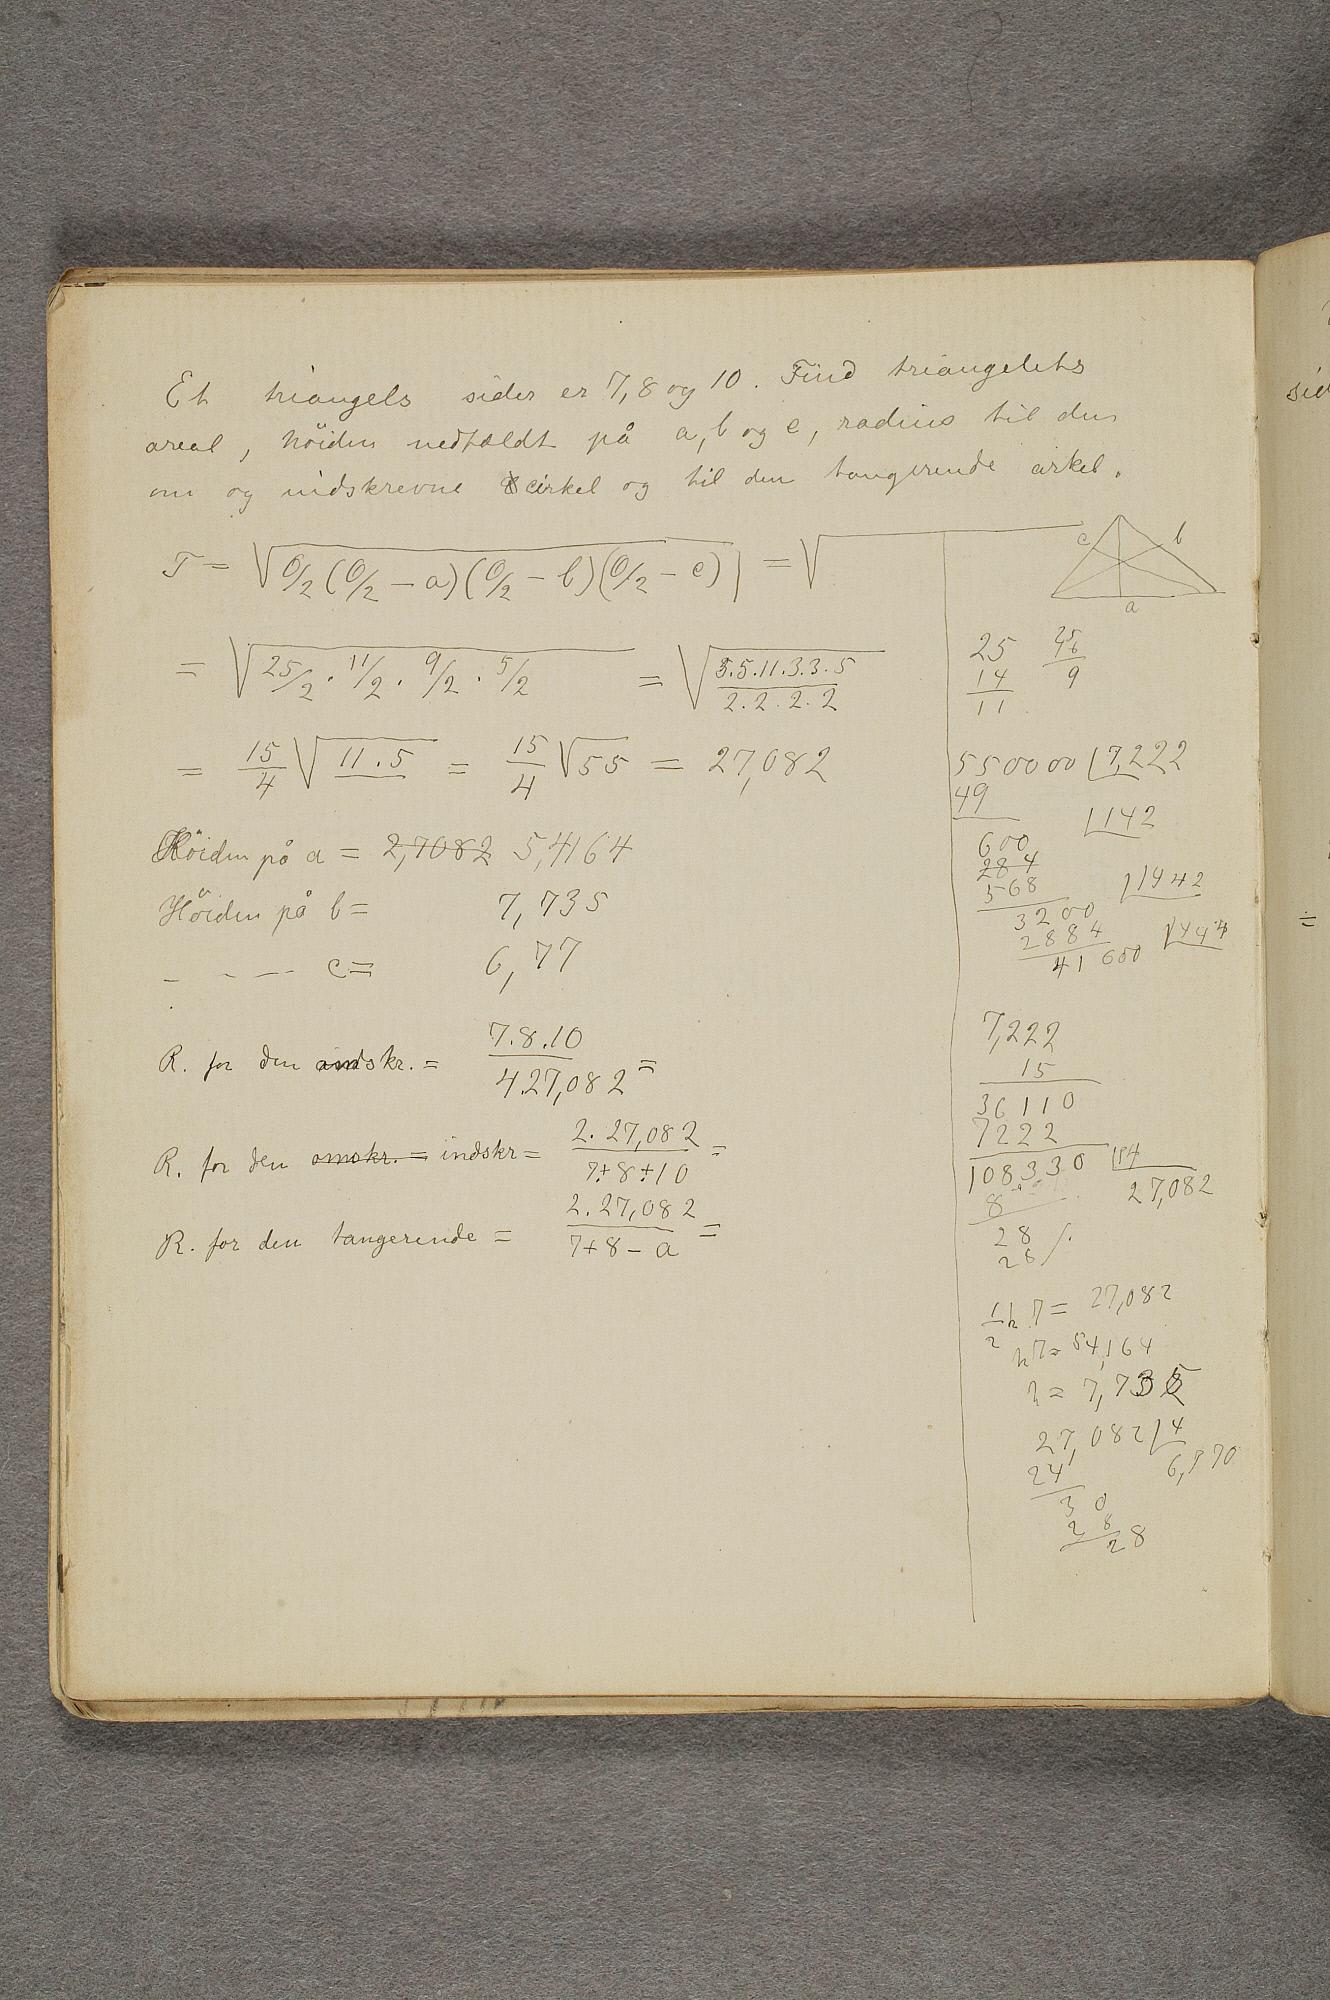 Et triangels sider er 7,8 og 10. Find triangelets
areal, höiden nedfældt på a, b og c, radius til den
om og indskrevne cirkel og til den tangerende cirkel.
T = √O/2 (O/2 - a)(O/2 - b)(O/2 - c) = √
c b
a
= √25/2 · 11/2 · 9/2 · 5/2 = √5.5.11.3.3.5 / 2.2.2.2
= 15/4 √11.5 = 15/4 √55 = 27,082
Höiden på a = 2,7082 5,4164
Höiden på b = 7,735
- - - - c = 6,77
R. for den omskr. = 7.8.10 / 4.27,082 =
R. for den omskr. = indskr = 2. 27,082 / 7+8+10 =
R. for den tangerende = 2. 27,082 / 7+8-a =
25
14
11
25
16
9
550000 7,222
49
600 1142
284
568
3200
2884
41600
7,222
15
36110
7222
108330 4
8 27,082
28
28
1/2 h 7 = 27,082
h7 = 54,164
h = 7,735
27,082 4
24 6,770
30
28
28
sid
=